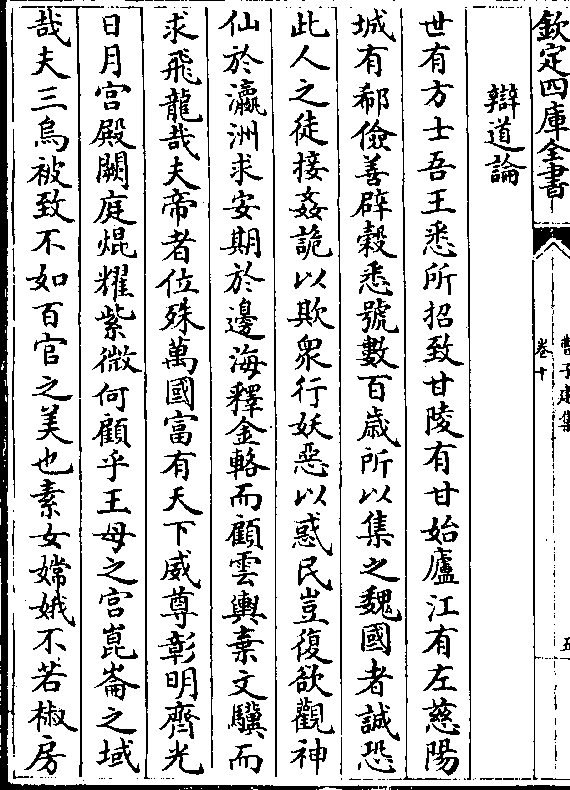 欽定四庫全書
曹子建集
卷十
五
辯道論
世有方士吾王悉所招致甘陵有甘始廬江有左慈陽
城有郗儉善辟穀悉號數百歲所以集之魏國者誠恐
此人之徒接姦詭以欺衆行妖惡以惑民豈復欲觀神
仙於瀛洲求安期於邊海釋金輅而顧雲輿棄文驥而
求飛龍哉夫帝者位殊萬國富有天下威尊彰明齊光
日月宮殿闕庭焜耀紫微何顧乎王母之宮崑崙之域
哉夫三烏被致不如百官之美也素女嫦娥不若椒房